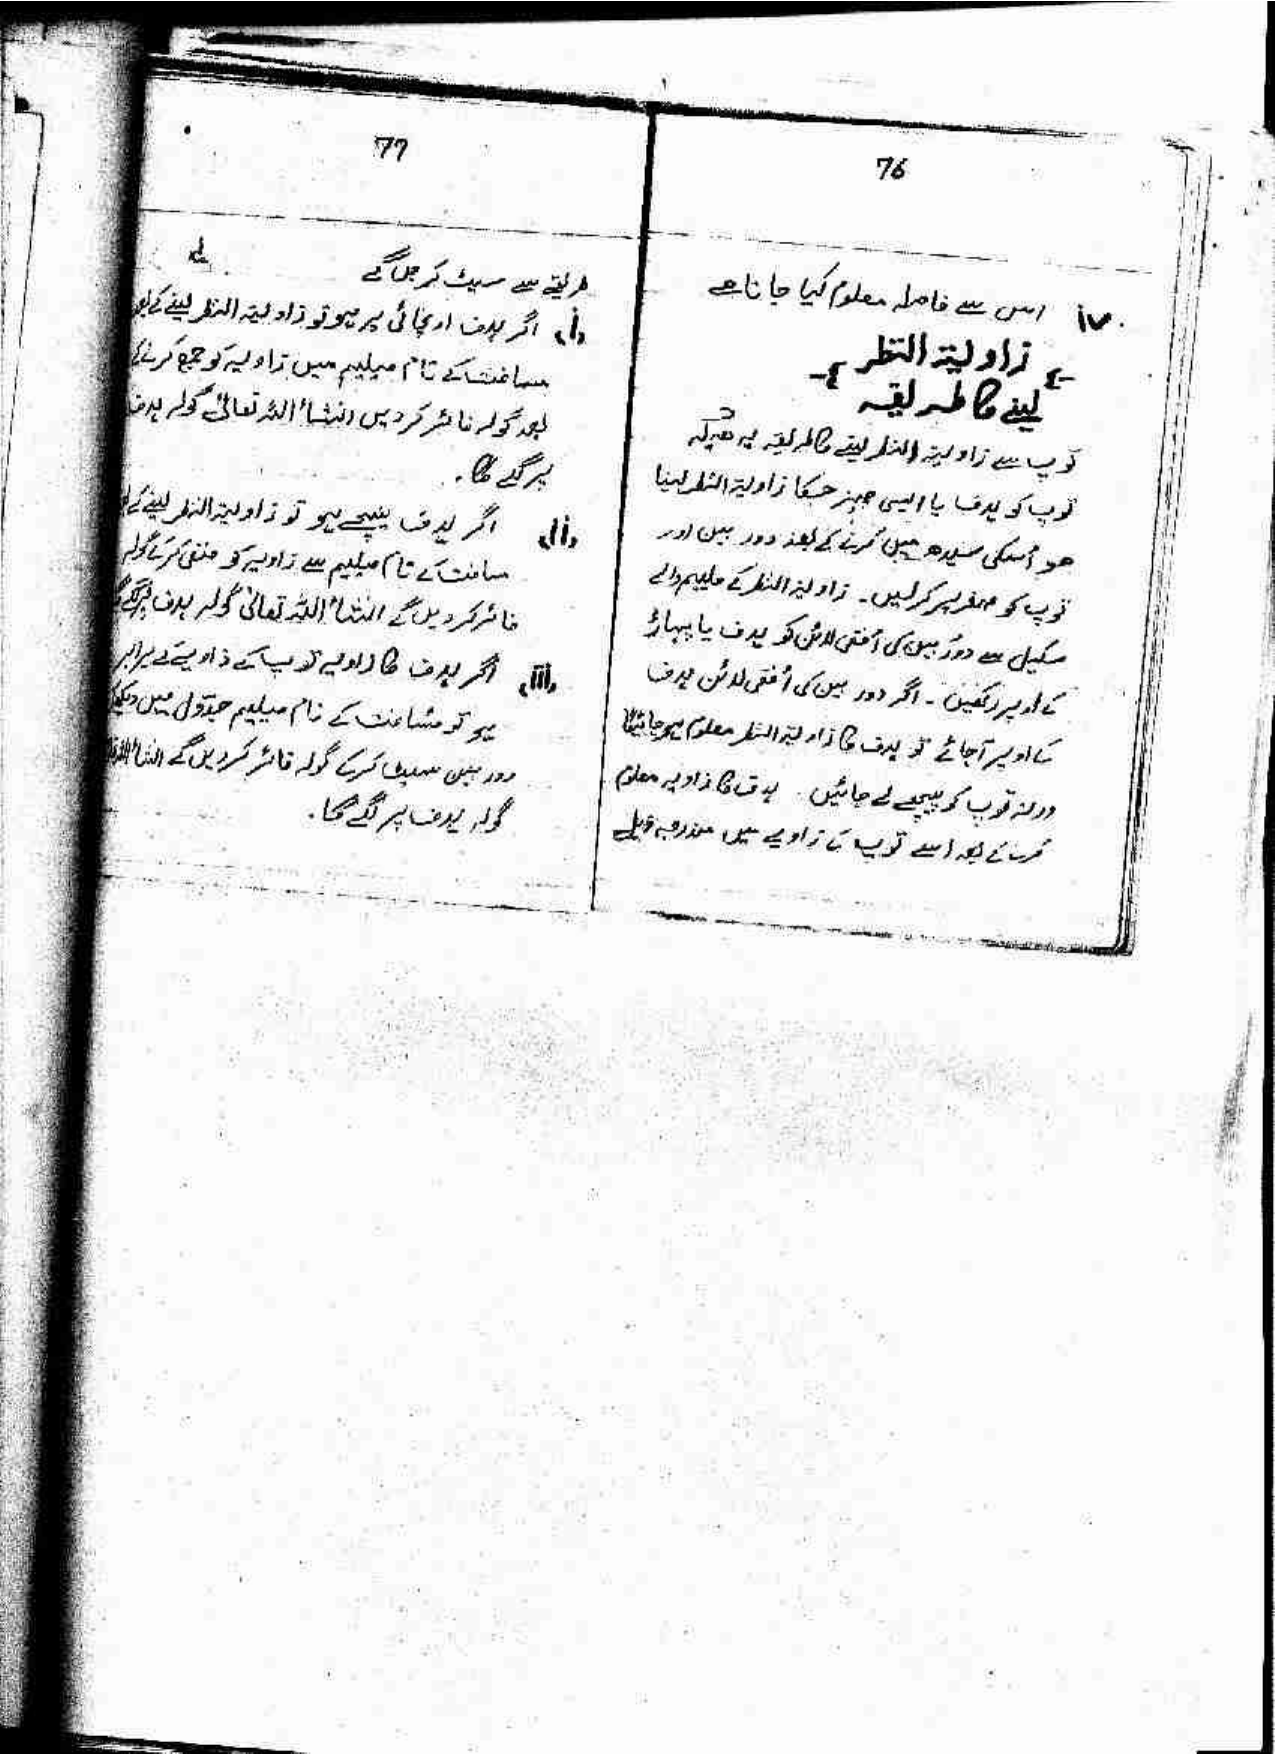 76
iv. اس سے فاصلہ معلوم کیا جاتا ہے
زاویۃ النظر
لینے کا طریقہ
توپ سے زاویۃ النظر لینے کا طریقہ یہ ھیکہ
توپ کو ہدف یا ایسی چیز جسکا زاویۃ النظر لینا
ھو اُسکی سیدھ میں کرنے کے بعد دور بین اور
توپ کو صفر پر کر لیں۔ زاویۃ النظر کے ملیم والے
سکیل سے دوربین کی اُفقی لائن کو ہدف یا پہاڑ
کے اوپر رکھیں۔ اگر دور بین کی اُفقی لائن ہدف
کے اوپر آجائے تو ہدف کا زاویۃ النظر معلوم ہو جائیگا
ورنہ توپ کو پیچھے لے جائیں۔ ہدف کا زاویہ معلوم
کرنے کے بعد اسے توپ کے زاویے میں مندرجہ ذیل
77
طریقے سے سیٹ کریں گے
(i) اگر ہدف اونچائی پر ہو تو زاویۃ النظر لینے کے بعد
مسافت کے تام میلیم میں زاویہ کو جمع کرنے کے
بعد گولہ فائر کردیں انشاء اللہ تعالیٰ گولہ ہدف
پر لگے گا۔
(ii) اگر ہدف نیچے ہو تو زاویۃ النظر لینے کے بعد
مسافت کے تام میلیم سے زاویہ کو منفی کرکے گولہ
فائر کردیں گے انشاء اللہ تعالیٰ گولہ ہدف پر لگے گا
(iii) اگر ہدف کا زاویہ توپ کے زاویے کے برابر
ہو تو مسافت کے تام میلیم جدول میں دیکھ
دور بین سیٹ کرکے گولہ فائر کردیں گے انشاء اللہ
گولہ ہدف پر لگے گا۔